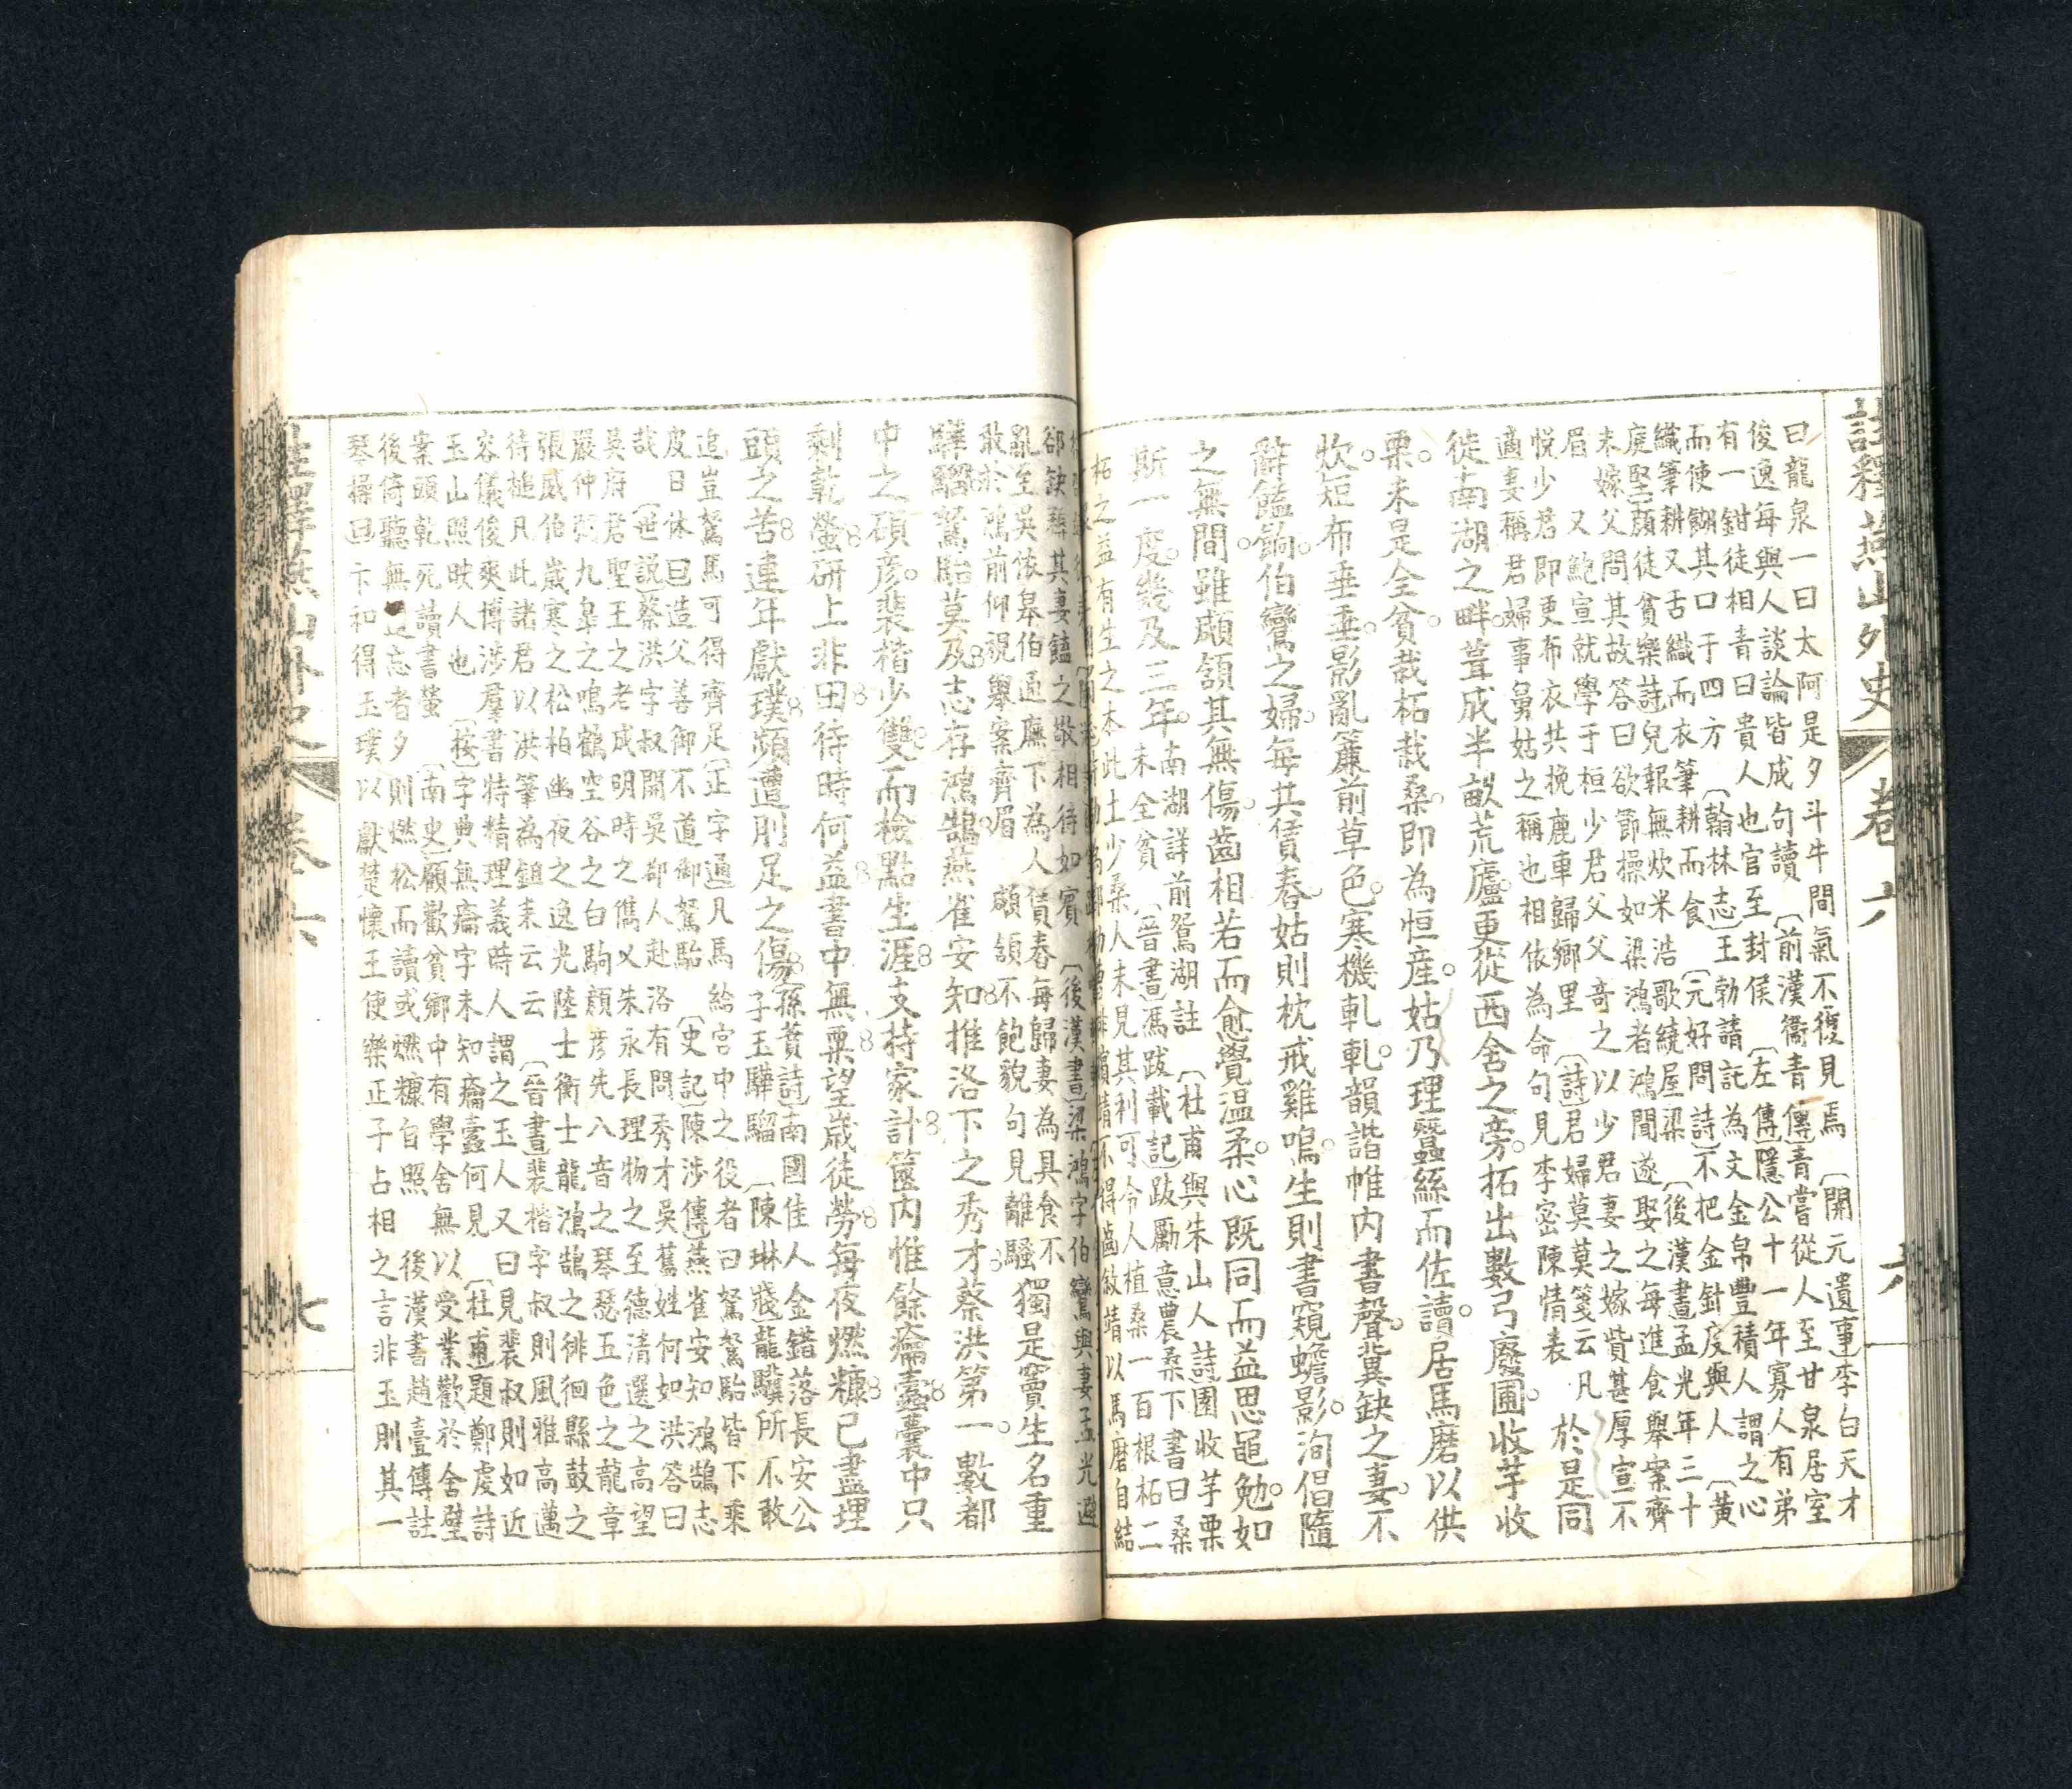 註釋燕山外史 卷六 六
曰龍泉一曰太阿是夕斗牛間氣不復見焉〔開元遺事〕李白天才
俊逸每與人談論皆成句讀〔前漢衞青傳〕青嘗從人至甘泉居室
有一鉗徒相青曰貴人也官至封侯〔左傳〕隱公十一年寡人有弟
而使餬其口于四方〔翰林志〕王勃請託為文金帛豐積人謂之心
織筆耕又舌織而衣筆耕而食〔元好問詩〕不把金針度與人〔黃
庭堅〕顏徒貧樂詩兒報無炊米浩歌繞屋梁〔後漢書〕孟光年三十
未嫁父問其故答曰欲節操如梁鴻者鴻聞遂娶之每進食舉案齊
眉 又鮑宣就學于桓少君父父奇之以少君妻之嫁貲甚厚宣不
悅少君即更布衣共挽鹿車歸鄉里〔詩〕君婦莫莫箋云凡
適妻稱君婦事舅姑之稱也相依為命句見李密陳情表
於是同
徒南湖之畔葺成半畝荒廬更從西舍之旁拓出數弓廢圃收芋收
栗未是全貧栽柘栽桑即為恒產姑乃理蠶絲而佐讀居馬磨以供
炊短布垂垂影亂簾前草色寒機軋軋韻諧帷内書聲冀缺之妻不
辭饁餉伯鸞之婦每其賃舂姑則枕戒雞鳴生則書窺蟾影洵倡隨
之無間雖顑頷其無傷齒相若而愈覺温柔心既同而益思黽勉如
斯一度幾及三年
南湖詳前鴛湖註〔杜甫與朱山人詩〕園收芋栗
未全貧〔晉書〕馮跋載記跋勵意農桑下書曰桑
柘之益有生之本此土少桑人未見其利可令人植桑一百根柘二
郤缺耨其妻饁之敬相待如賓〔後漢書〕梁鴻字伯鸞與妻孟光避
亂至吳依皋伯通廡下為人賃舂每歸妻為具食不
敢於鴻前仰視舉案齊眉 顑頷不飽貌句見離騷
獨是竇生名重
驊騮駑駘莫及志存鴻鵠燕雀安知推洛下之秀才蔡洪第一數都
中之碩彥裴楷少雙而檢點生涯支持家計篋内惟餘癟蠹囊中只
剩乾螢研上非田待時何益書中無粟望歲徒勞每夜燃糠已盡埋
頭之苦連年獻璞頻遭刖足之傷
孫蕡詩南國佳人金錯落長安公
子玉驊騮〔陳琳牋〕龍驥所不敢
追豈駑馬可得齊足〔正字通〕凡馬給宮中之役者曰駑駑駘皆下乘
皮日休曰造父善御不道御駑駘〔史記〕陳涉傳燕雀安知鴻鵠志
哉〔世説〕蔡洪字叔開吳郡人赴洛有問秀才吳舊姓何如洪答曰
吳府君聖王之老成明時之儁乂朱永長理物之至德清選之高望
嚴仲弼九皋之鳴鶴空谷之白駒顏彥先八音之琴瑟五色之龍章
張威伯歲寒之松柏幽夜之逸光陸士衡士龍鴻鵠之徘徊縣鼓之
待槌凡此諸君以洪筆為鉏耒云云〔晉書〕裴楷字叔則風雅高邁
容儀俊爽博涉羣書特精理義時人謂之玉人又曰見裴叔則如近
玉山照映人也〔按〕字典無癟字未知癟蠹何見〔杜甫〕題鄭虔詩
案頭乾死讀書螢〔南史〕顧歡貧鄉中有學舍無以受業歡於舍壁
後倚聽無忘者夕則燃松而讀或燃糠自照 後漢書趙臺傳註
琴操曰卞和得玉璞以獻楚懷王使樂正子占相之言非玉則其一
註釋燕山外史 卷六 七